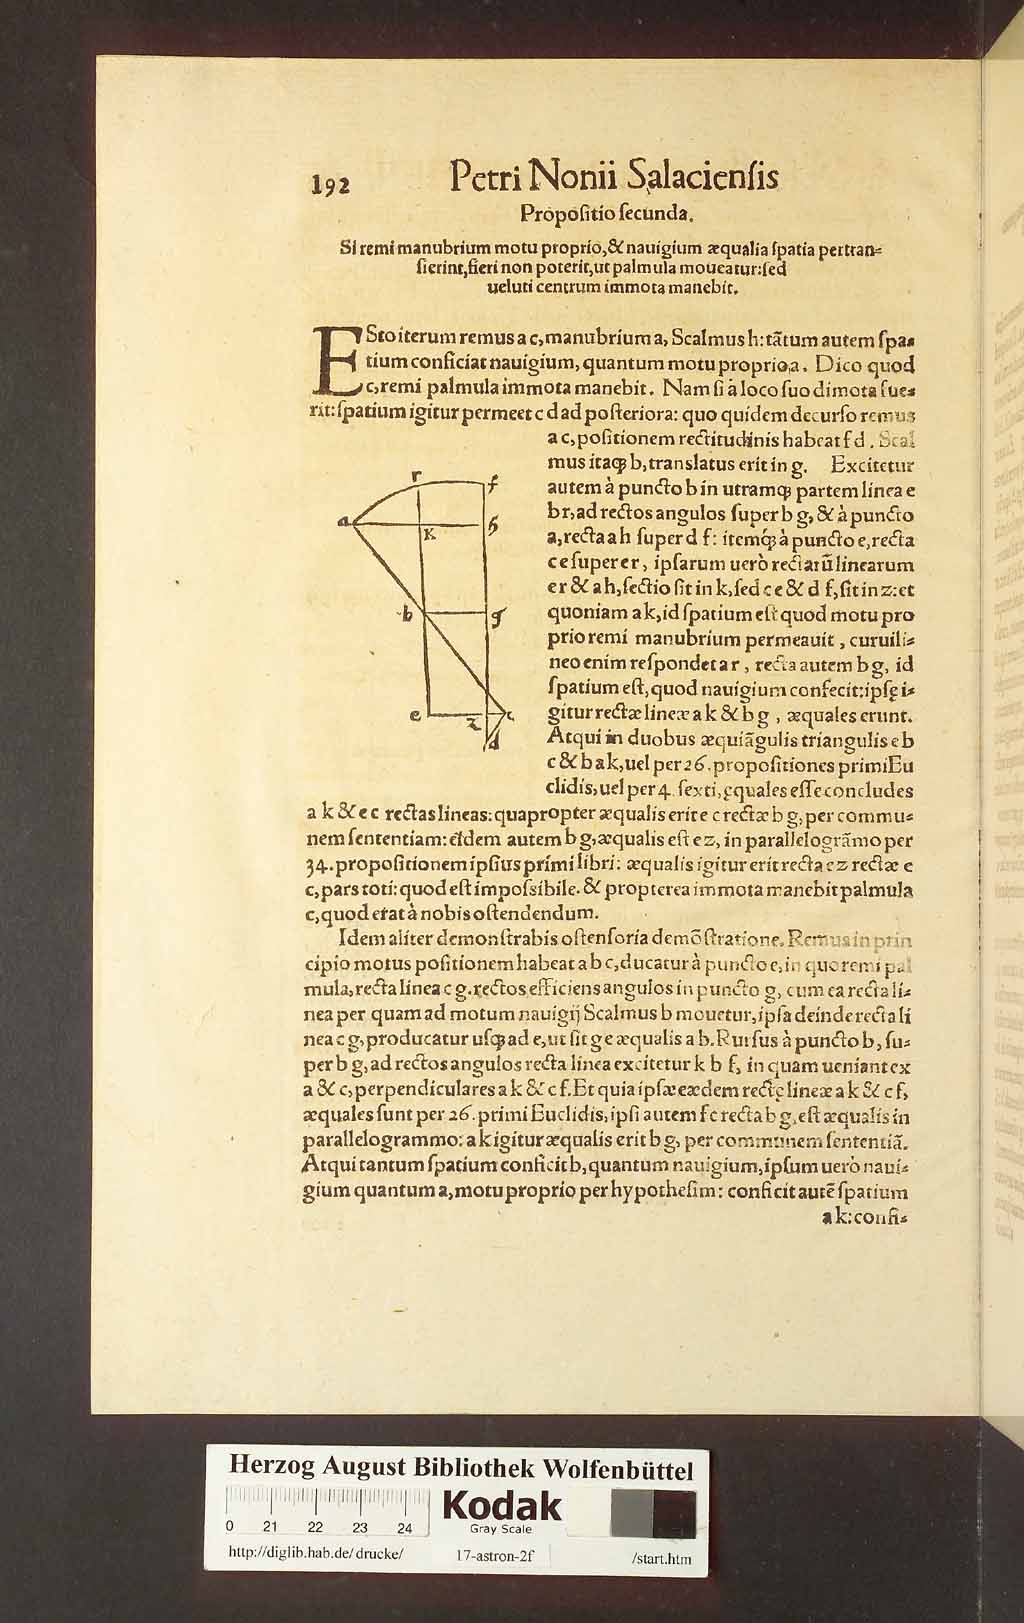 192 Petri Nonii Salacienſis
Propoſitio ſecunda.
Si remi manubrium motu proprio, & nauigium æqualia ſpatia pertran=
ſierint, fieri non poterit, ut palmula moueatur: ſed
ueluti centrum immota manebit.
ESto iterum remus a c, manubrium a, Scalmus h: tãtum autem ſpa=
tium conficiat nauigium, quantum motu proprio a. Dico quod
c, remi palmula immota manebit. Nam ſi à loco ſuo dimota fue=
rit: ſpatium igitur permeet c d ad poſteriora: quo quidem decurſo remus
a c, poſitionem rectitudinis habeat f d. Scal
mus itaqꝫ b, translatus erit in g. Excitetur
autem à puncto b in utramqꝫ partem linea e
b r, ad rectos angulos ſuper b g, & à puncto
a, recta a h ſuper d f: itemqꝫ́ à puncto e, recta
c e ſuper e r, ipſarum uerò rectarũ linearum
e r & a h, ſectio ſit in k, ſed c e & d f, ſit in z: et
quoniam a k, id ſpatium eſt quod motu pro
prio remi manubrium permeauit, curuili=
neo enim reſpondet a r, recta autem b g, id
ſpatium eſt, quod nauigium confecit: ipſę i=
gitur rectæ lineæ a k & b g, æquales erunt.
Atqui in duobus æquiãgulis triangulis e b
c & b a k, uel per 26. propoſitiones primi Eu
clidis, uel per 4. ſexti, ęquales eſſe concludes
a k & e c rectas lineas: quapropter æqualis erit e c rectæ b g, per commu=
nem ſententiam: eidem autem b g, æqualis eſt e z, in parallelogrãmo per
34. propoſitionem ipſius primi libri: æqualis igitur erit recta e z rectæ e
c, pars toti: quod eſt impoſsibile. & propterea immota manebit palmula
c, quod erat à nobis oſtendendum.
Idem aliter demonſtrabis oſtenſoria demõſtratione. Remus in prin
cipio motus poſitionem habeat a b c, ducatur à puncto c, in quo remi pal
mula, recta linea c g. rectos efficiens angulos in puncto g, cum ea recta li=
nea per quam ad motum nauigij Scalmus b mouetur, ipſa deinde recta li
nea c g, producatur uſqꝫ ad e, ut ſit g e æqualis a b. Rurſus à puncto b, ſu=
per b g, ad rectos angulos recta linea excitetur k b f, in quam ueniant ex
a & c, perpendiculares a k & c f. Et quia ipſæ eædem rectę lineæ a k & c f,
æquales ſunt per 26. primi Euclidis, ipſi autem f c recta b g, eſt æqualis in
parallelogrammo: a k igitur æqualis erit b g, per communem ſententiã.
Atqui tantum ſpatium conficit b, quantum nauigium, ipſum uerò naui=
gium quantum a, motu proprio per hypotheſim: conficit autẽ ſpatium
a k: confi=
r f
a K h
b g
e z c
d
Herzog August Bibliothek Wolfenbüttel
0 21 22 23 24
Kodak
Gray Scale
http://diglib.hab.de/drucke/ 17-astron-2f /start.htm